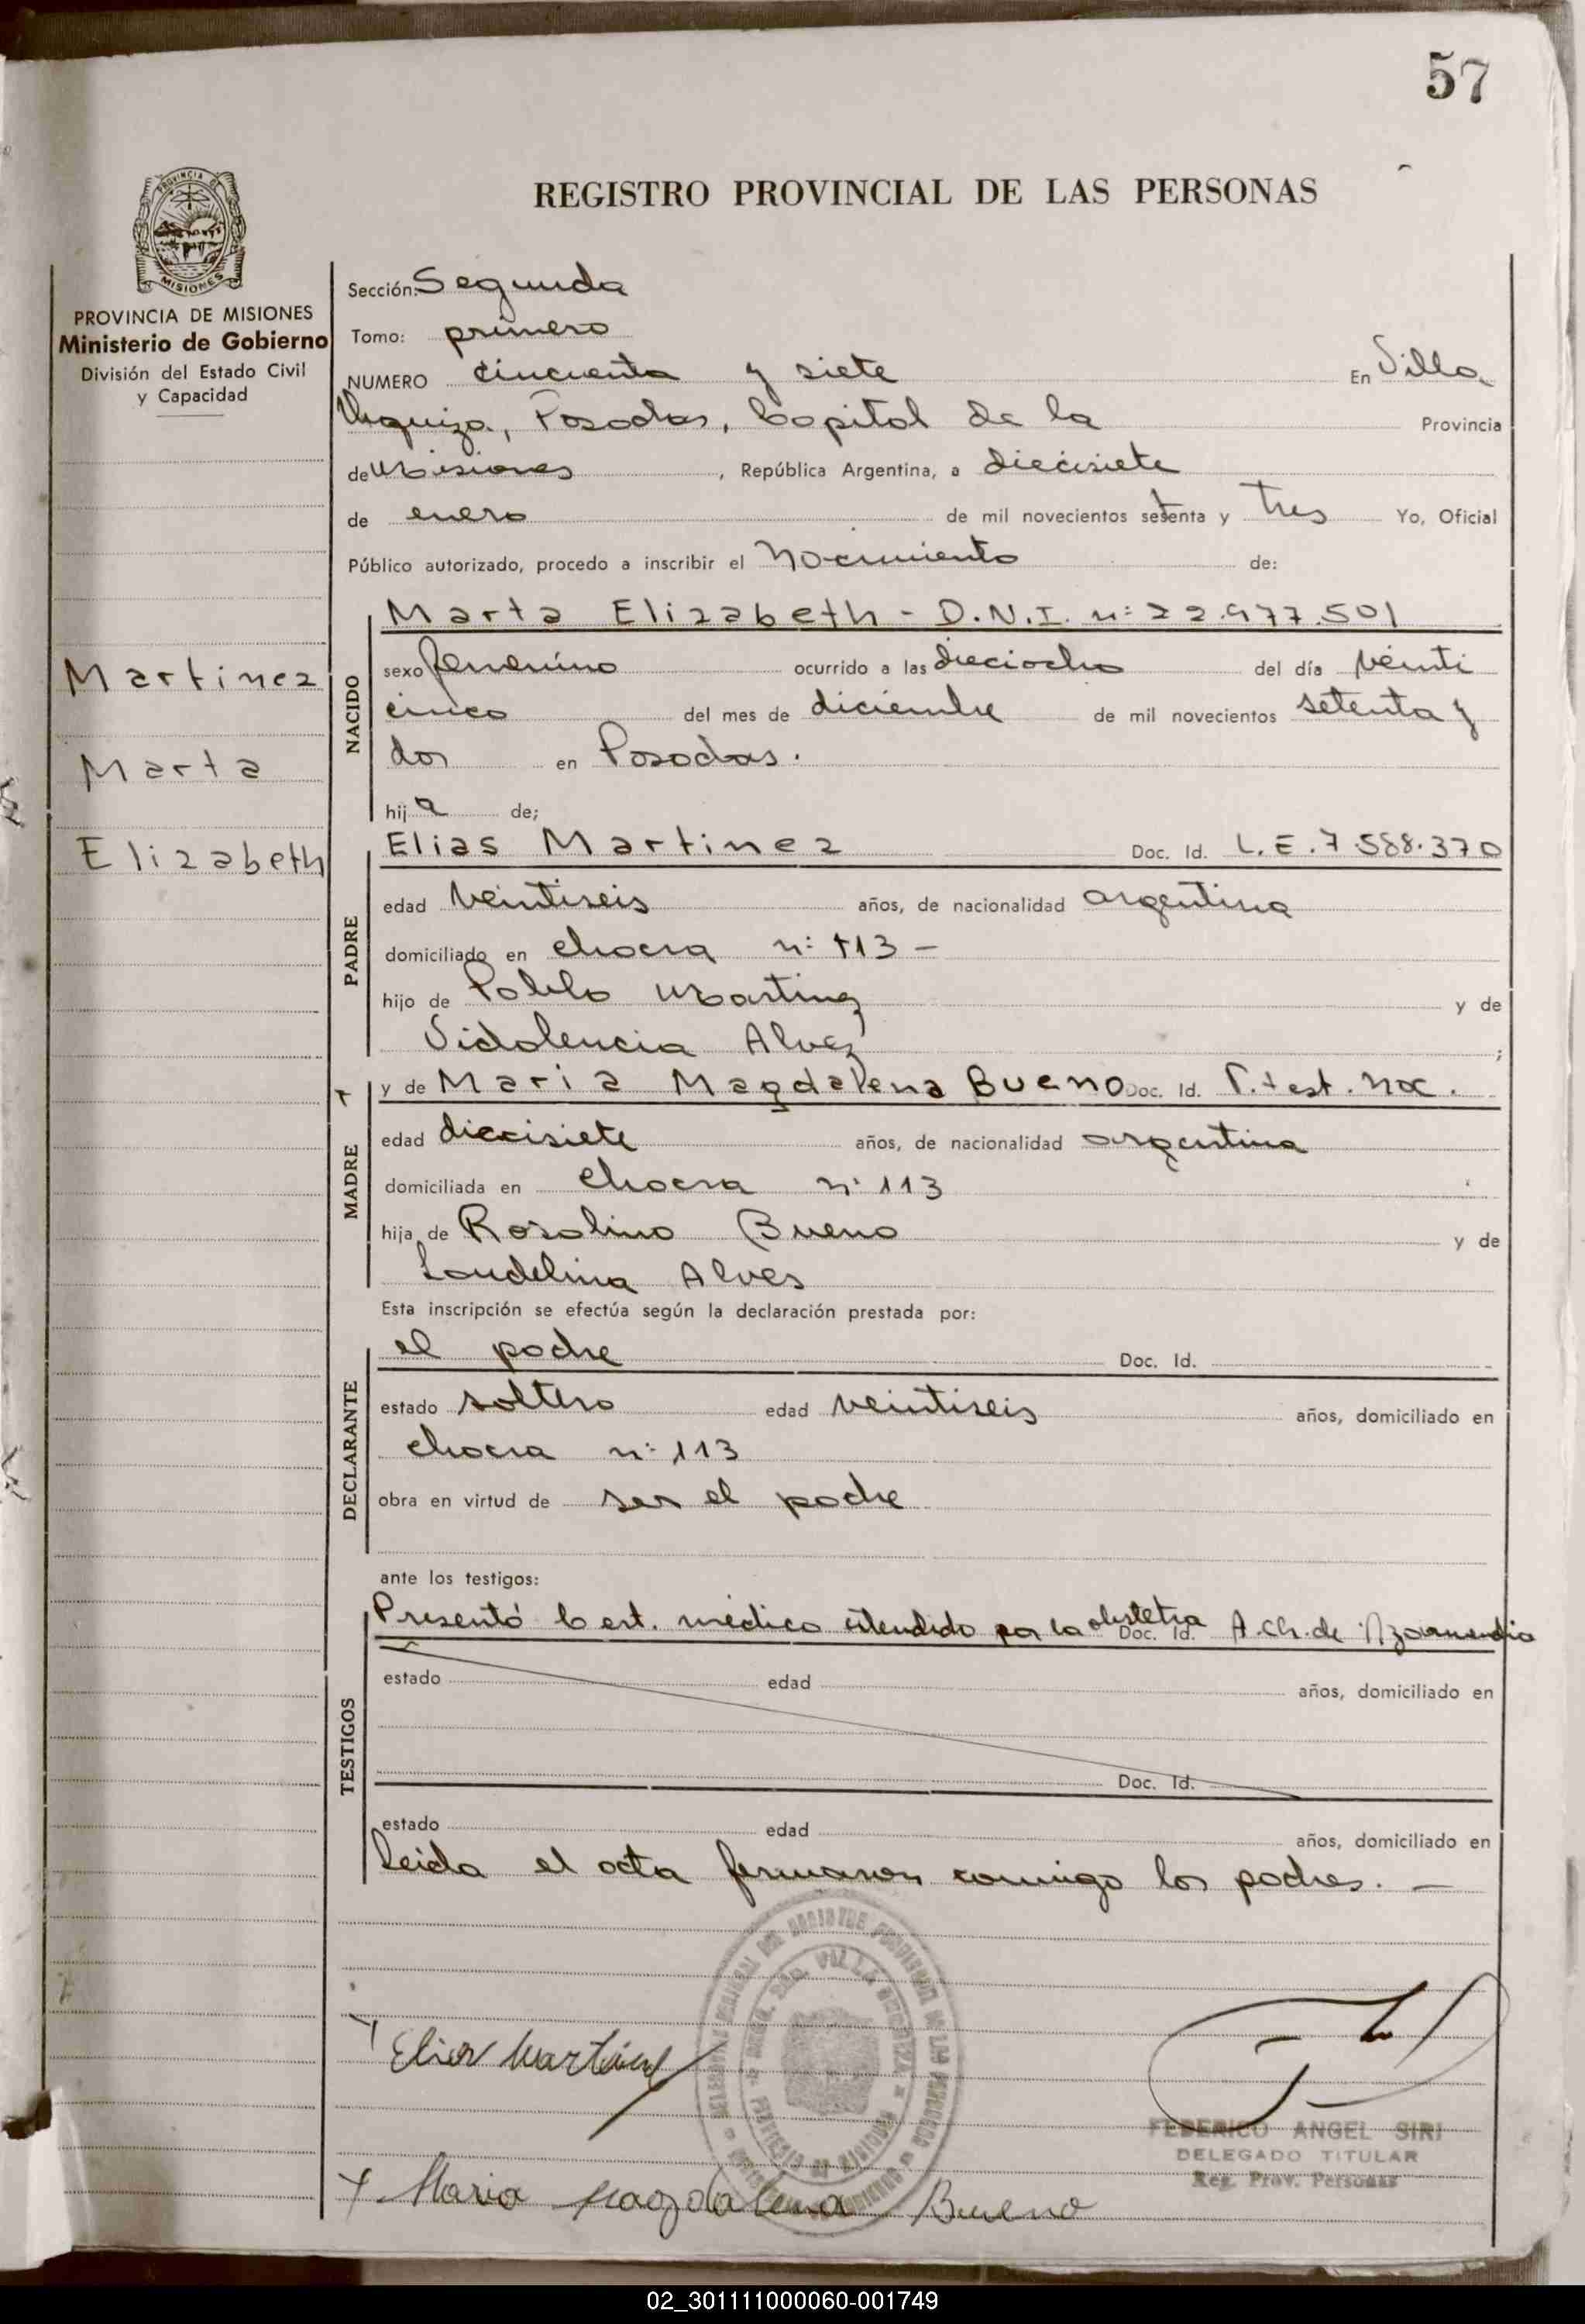 57
REGISTRO PROVINCIAL DE LAS PERSONAS
PROVINCIA DE MISIONES
Ministerio de Gobierno
División del Estado Civil
y Capacidad
Sección: Segunda
Tomo: primero
NUMERO cincuenta y siete En Villa
Urquiza, Posadas, Capital de la Provincia
de Misiones, República Argentina, a diecisiete
de enero de mil novecientos setenta y tres Yo, Oficial
Público autorizado, procedo a inscribir el nacimiento de:
Marta Elizabeth - D.N.I. n: 22.977.501
Martinez
Marta
Elizabeth
NACIDO
sexo femenino ocurrido a las dieciocho del día veinti
cinco del mes de diciembre de mil novecientos setenta y
dos en Posadas.
hija de;
PADRE
Elias Martinez Doc. Id. L.E. 7.588.370
edad veintiseis años, de nacionalidad argentina
domiciliado en chacra n: 113 -
hijo de Pablo Martinez y de
Vidalencia Alvez ;
MADRE
y de Maria Magdalena Bueno Doc. Id.
edad diecisiete años, de nacionalidad argentina
domiciliada en chacra n: 113
hija de Rosalino Bueno y de
Laudelina Alves
Esta inscripción se efectúa según la declaración prestada por:
DECLARANTE
el padre Doc. Id.
estado soltero edad veintiseis años, domiciliado en
chacra n: 113
obra en virtud de ser el padre
ante los testigos:
TESTIGOS
Presentó Cert. médico extendido por la obstetra Doc. Id. A. Ch. de Azarmendia
estado edad años, domiciliado en
Doc. Id.
estado edad años, domiciliado en
Leida el acta firmaron conmigo los padres. -
Elias Martinez
FEDERICO ANGEL SIRI
DELEGADO TITULAR
Reg. Prov. Personas
Maria Magdalena Bueno
02_301111000060-001749